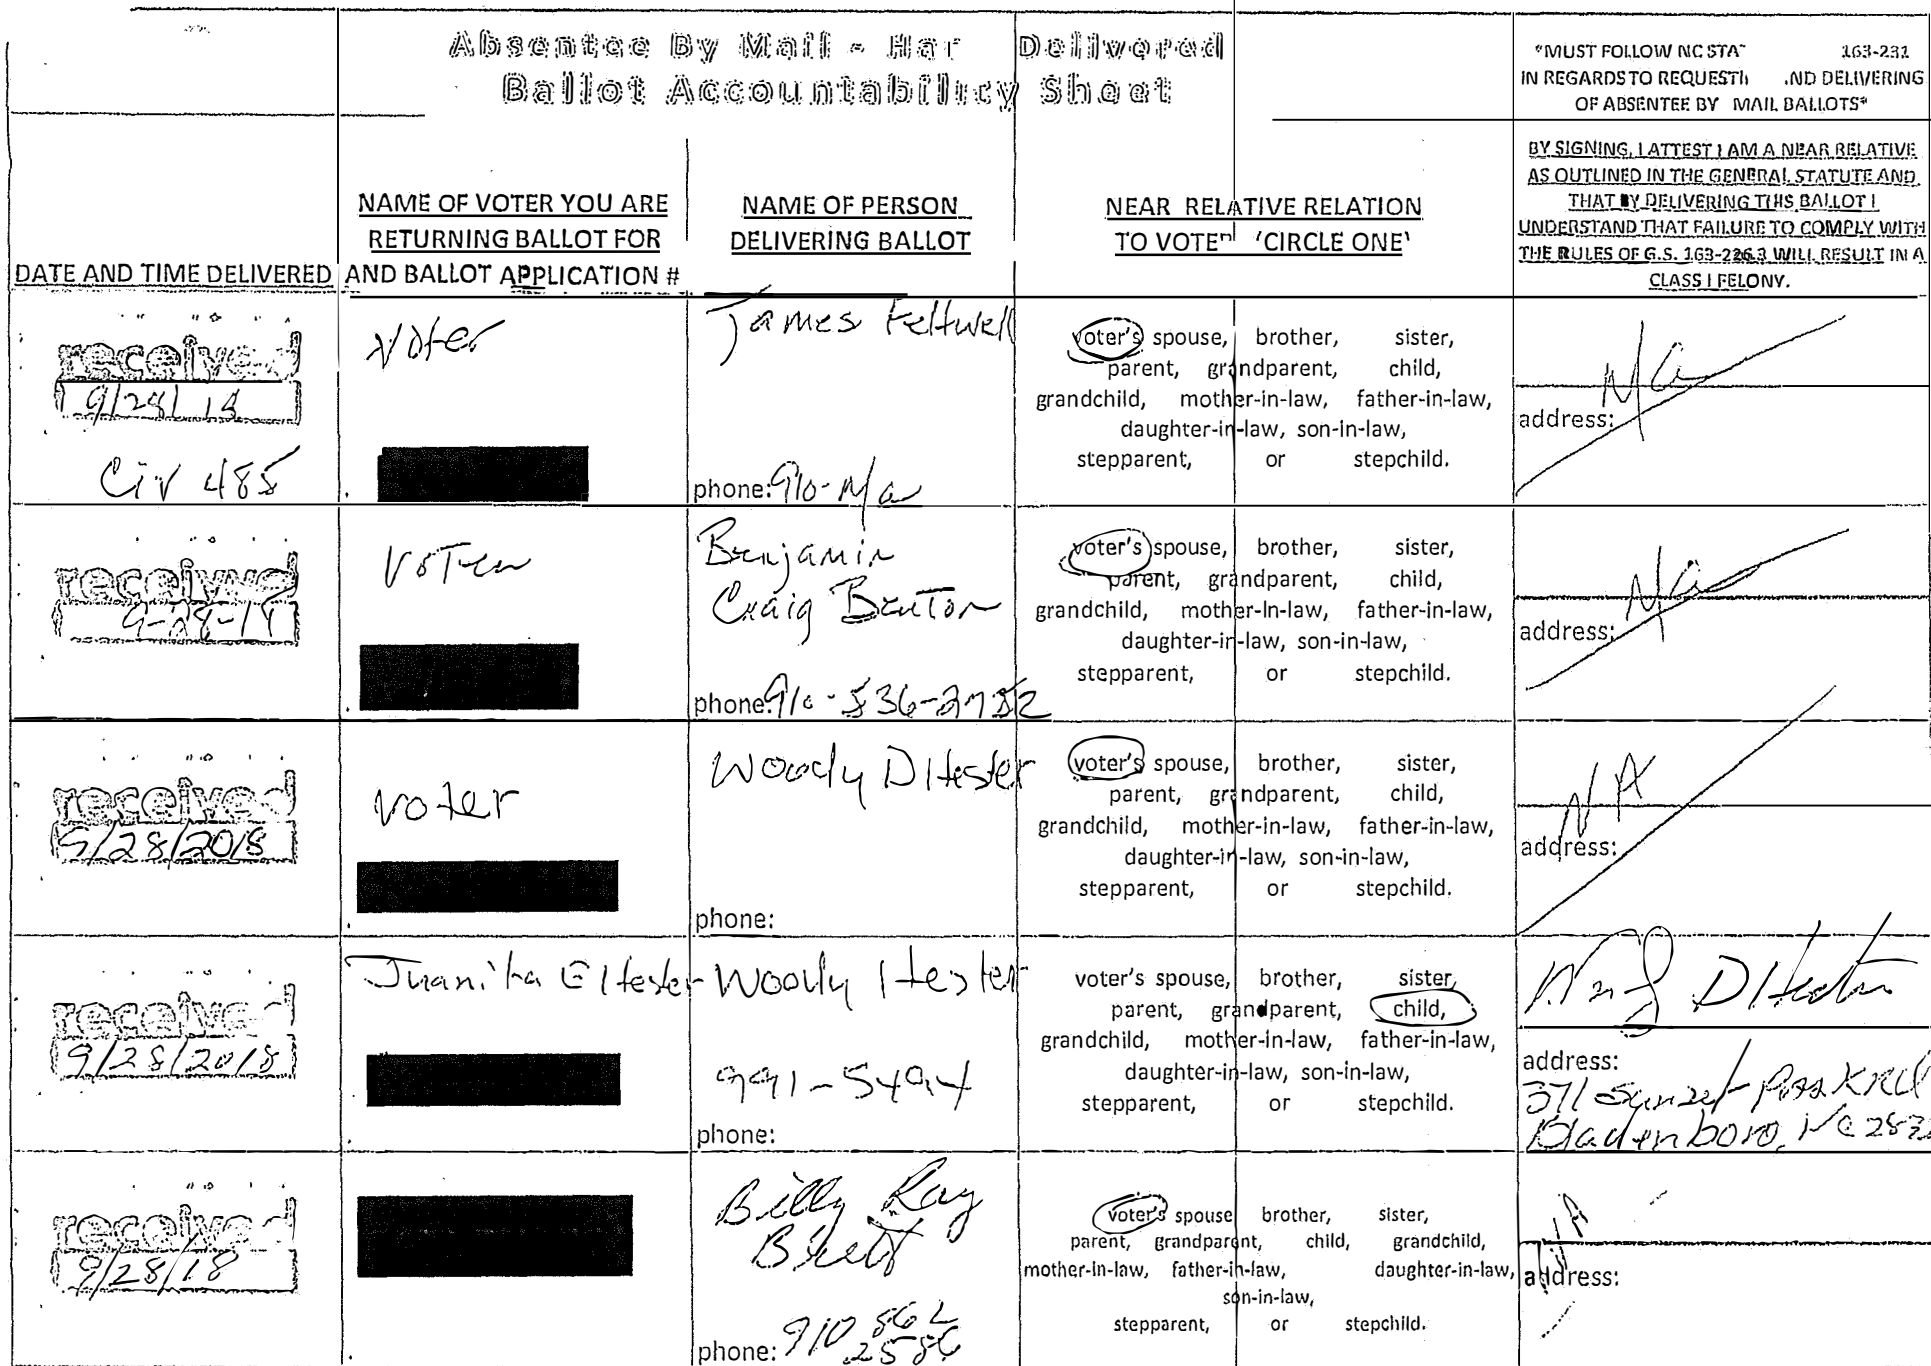 Absentee By Mail - Har Delivered
Ballot Accountability Sheet
"MUST FOLLOW NC STA 163-231
IN REGARDS TO REQUESTI ND DELIVERING
OF ABSENTEE BY MAIL BALLOTS"
DATE AND TIME DELIVERED
NAME OF VOTER YOU ARE
RETURNING BALLOT FOR
AND BALLOT APPLICATION #
NAME OF PERSON
DELIVERING BALLOT
NEAR RELATIVE RELATION
TO VOTER (CIRCLE ONE)
BY SIGNING, I ATTEST I AM A NEAR RELATIVE
AS OUTLINED IN THE GENERAL STATUTE AND
THAT BY DELIVERING THIS BALLOT I
UNDERSTAND THAT FAILURE TO COMPLY WITH
THE RULES OF G.S. 163-226.3 WILL RESULT IN A
CLASS I FELONY.
received
9/28/18
Civ 485
Voter
James Feltwell
phone: 910-N/a
voter's spouse, brother, sister,
parent, grandparent, child,
grandchild, mother-in-law, father-in-law,
daughter-in-law, son-in-law,
stepparent, or stepchild.
N/a
address:
received
9-28-18
Voter
Benjamin
Craig Benton
phone: 910-536-2752
voter's spouse, brother, sister,
parent, grandparent, child,
grandchild, mother-in-law, father-in-law,
daughter-in-law, son-in-law,
stepparent, or stepchild.
N/a
address:
received
9/28/2018
voter
Woody D Hester
phone:
voter's spouse, brother, sister,
parent, grandparent, child,
grandchild, mother-in-law, father-in-law,
daughter-in-law, son-in-law,
stepparent, or stepchild.
NA
address:
received
9/28/2018
Juanita E Hester
Woody Hester
991-5494
phone:
voter's spouse, brother, sister,
parent, grandparent, child,
grandchild, mother-in-law, father-in-law,
daughter-in-law, son-in-law,
stepparent, or stepchild.
D Hester
address:
371 Sunset Park Rd
Bladenboro, NC 2832
received
9/28/18
Billy Ray
phone: 910 862
2586
voter's spouse brother, sister,
parent, grandparent, child, grandchild,
mother-in-law, father-in-law, daughter-in-law,
son-in-law,
stepparent, or stepchild.
N/A
address: